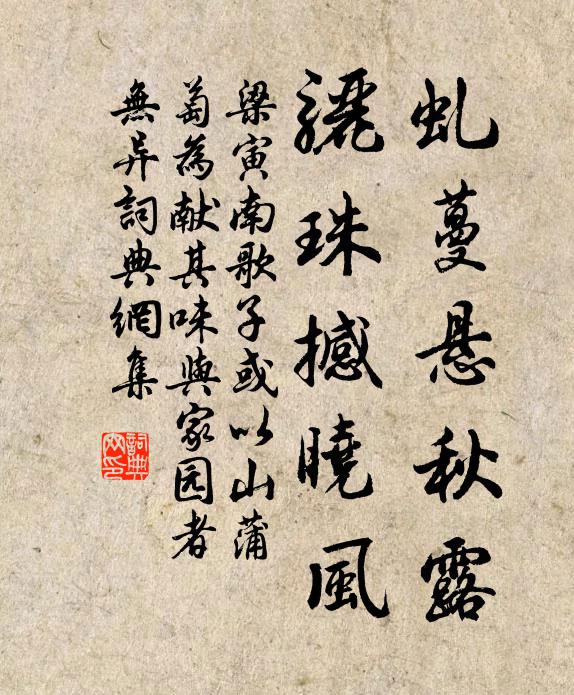 虬蔓悬秋露
骊珠撼曉風
梁寅南歌子或以山蒲
萄為献其味與家园者
無异詞典網集
詞典网印